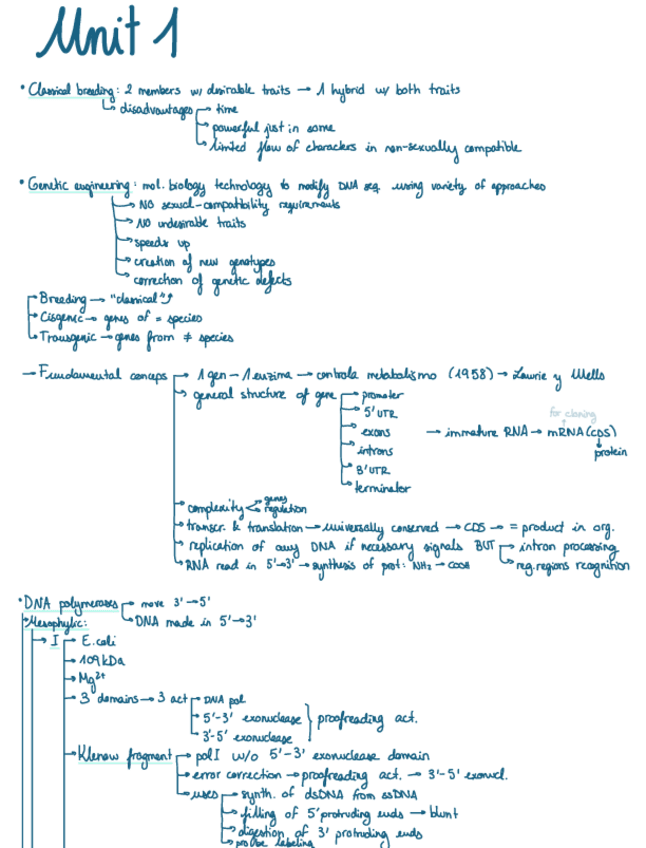 Unit 1
• Classical breeding: 2 members w/ desirable traits → 1 hybrid w/ both traits
disadvantages → time
→ powerful just in some
→ limited flow of characters in non-sexually compatible
• Genetic engineering: mol. biology technology to modify DNA seq. using variety of approaches
→ NO sexual-compatibility requirements
→ NO undesirable traits
→ speeds up
→ creation of new genotypes
→ correction of genetic defects
→ Breeding → "classical" ⤴
→ Cisgenic → genes of = species
→ Transgenic → genes from ≠ species
→ Fundamental conceps → 1 gen – 1 enzima → controla metabolismo (1958) → Laurie y Wells
→ general structure of gene → promoter
→ 5' UTR
for cloning
→ exons → immature RNA → mRNA (CDS)
→ introns protein
→ 3' UTR
→ terminator
→ complexity < genes
regulation
→ transcr. & translation → universally conserved → CDS → = product in org.
→ replication of any DNA if necessary signals BUT → intron processing
→ RNA read in 5'→3' → synthesis of prot: NH₂ → COOH → reg. regions recognition
• DNA polymerases → move 3'→5'
→ DNA made in 5'→3'
• Mesophylic:
→ I → E. coli
→ 109 kDa
→ Mg²⁺
→ 3 domains → 3 act → DNA pol
→ 5'-3' exonuclease } proofreading act.
→ 3'-5' exonuclease
→ Klenow fragment → pol I w/o 5'-3' exonuclease domain
→ error correction → proofreading act. → 3'-5' exonucl.
→ uses → synth. of dsDNA from ssDNA
→ filling of 5' protruding ends → blunt
→ digestion of 3' protruding ends
→ probe labeling